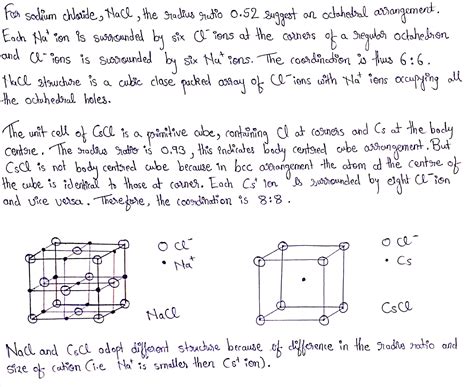 For sodium chloride, NaCl, the radius ratio 0.52 suggest an octahedral arrangement.
Each Na⁺ ion is surrounded by six Cl⁻ ions at the corners of a regular octahedron
and Cl⁻ ions is surrounded by six Na⁺ ions. The coordination is thus 6:6.
NaCl structure is a cubic close packed array of Cl⁻ ions with Na⁺ ions occupying all
the octahedral holes.
The unit cell of CsCl is a primitive cube, containing Cl at corners and Cs at the body
centre. The radius ratio is 0.93, this indicates body centred cube arrangement. But
CsCl is not body centred cube because in bcc arrangement the atom at the centre of
the cube is identical to those at corner. Each Cs⁺ ion is surrounded by eight Cl⁻ ion
and vice versa. Therefore, the coordination is 8:8.
Cl⁻
Na⁺
NaCl
Cl⁻
Cs
CsCl
NaCl and CsCl adopt different structure because of difference in the radius ratio and
size of cation (i.e Na⁺ is smaller then Cs⁺ ion).